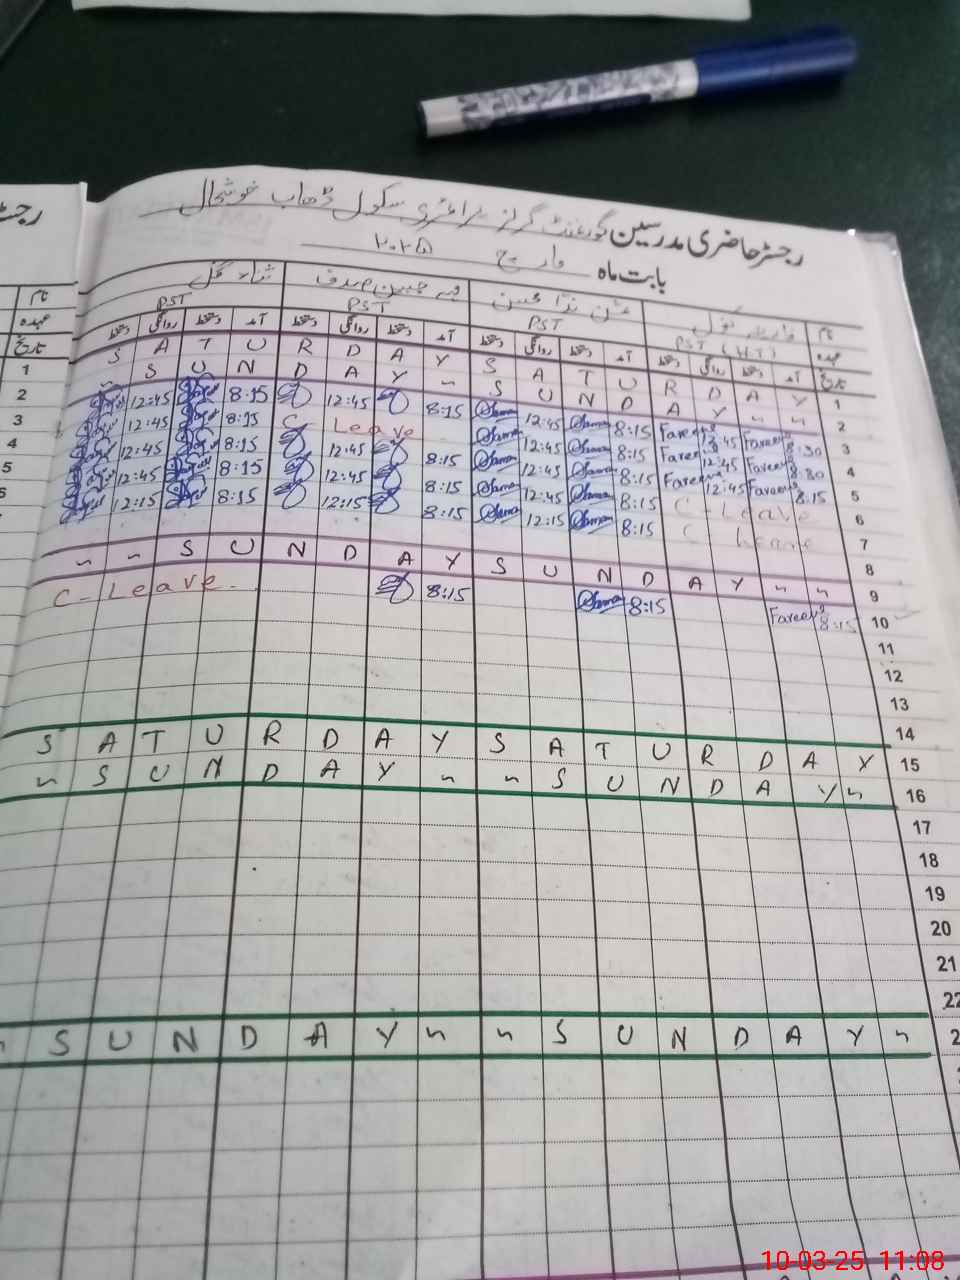 رجسٹر حاضری مدرسین گورنمنٹ گرلز پرائمری سکول ڈھاب خوشحال
بابت ماہ مارچ ۲۰۲۵
نام
عہدہ PST (H.T) PST PST PST
تاریخ آمد دستخط روانگی دستخط آمد دستخط روانگی دستخط آمد دستخط روانگی دستخط آمد دستخط روانگی دستخط
S A T U R D A Y S A T U R D A Y 1
" S U N D A Y " S U N D A Y " " 2
12:45 8:15 12:45 8:15 12:45 8:15 Fareeha 12:45 Fareeha 8:30 3
12:45 8:15 C- Leave 12:45 8:15 Fareeha 12:45 Fareeha 8:30 4
12:45 8:15 12:45 8:15 12:45 8:15 Fareeha 12:45 Fareeha 8:15 5
12:45 8:15 12:45 8:15 12:45 8:15 C- Leave 6
12:15 8:15 12:15 8:15 12:15 8:15 C- Leave 7
8
" " S U N D A Y S U N D A Y " " 9
C- Leave - 8:15 8:15 Fareeha 8:15 10
11
12
13
14
S A T U R D A Y S A T U R D A Y 15
" S U N D A Y " " S U N D A Y " 16
17
18
19
20
21
22
" S U N D A Y " " S U N D A Y " 2
رجسٹ
نام
عہدہ
تاریخ
1
2
3
4
5
6
10-03-25 11:08